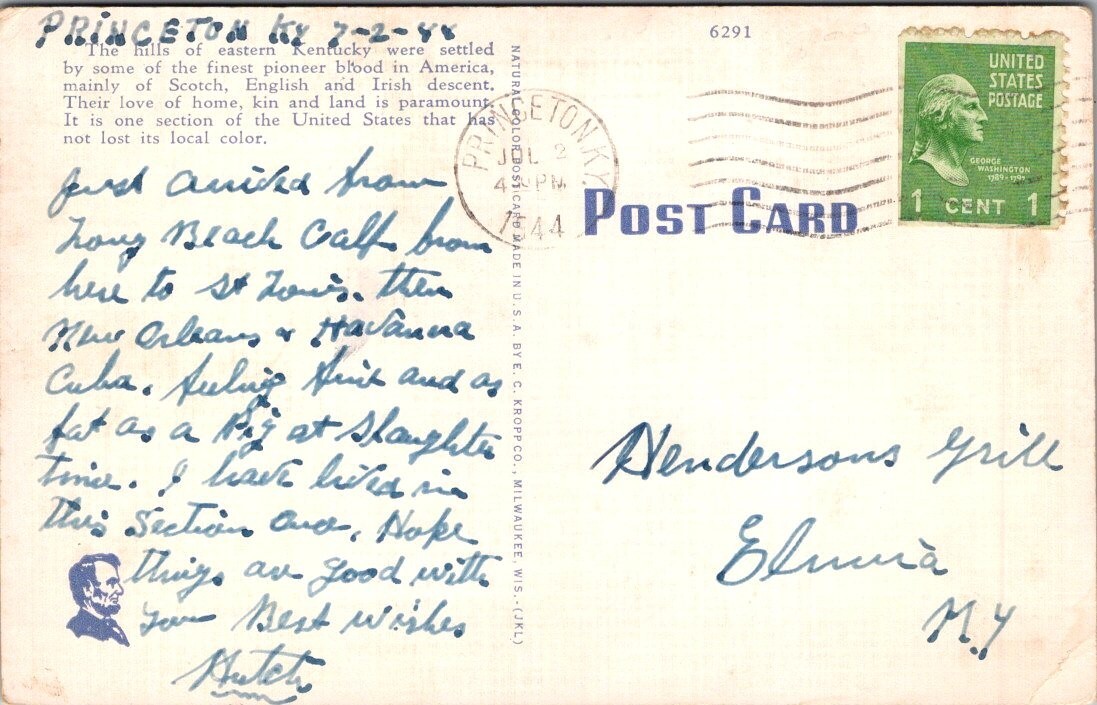 PRINCETON KY 7-2-44
The hills of eastern Kentucky were settled
by some of the finest pioneer blood in America,
mainly of Scotch, English and Irish descent.
Their love of home, kin and land is paramount.
It is one section of the United States that has
not lost its local color.
Just arrived from
Long Beach Calf from
here to St Louis. then
New Orleans & Havanna
Cuba. feeling fine and as
fat as a Pig at Slaughter
time. I have lived in
this Section once. Hope
things are good with
you Best wishes
Hutch
NATURAL COLOR POST CARD MADE IN U.S.A. BY E. C. KROPP CO., MILWAUKEE, WIS.-(JKL)
6291
PRINCETON, KY.
JUL 2
PM
1944
POST CARD
UNITED
STATES
POSTAGE
GEORGE
WASHINGTON
1789-1797
1 CENT 1
Hendersons Grill
Elmira
N.Y